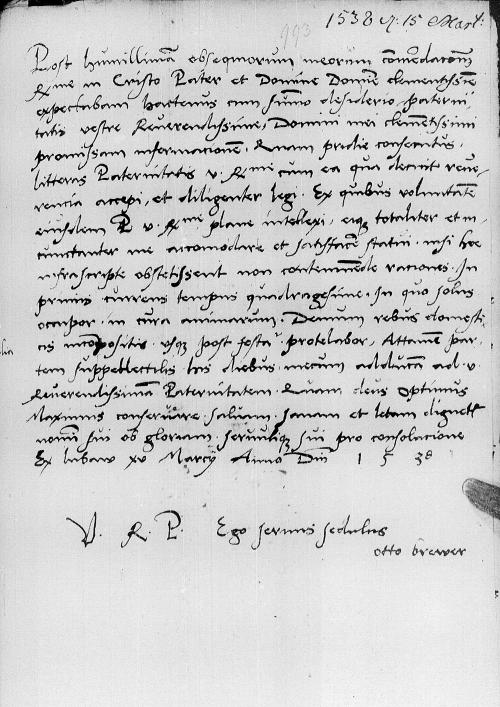 1538 d. 15 Mart:
993
Post humillimā obsequiorum meorum comēdacōem
Rme in Cristo Pater et Domine Domīe clementissīe
expectabam hactenus cum sūmo desiderio paterni
tatis vestre Reverendissime, Domini mei clemētissimi
promissam informacionem, Quam pridie consecutus,
litteras Paternitatis v. Rme cum ea qua decuit reue
rencia accepi, et diligenter legi. Ex quibus voluntatē
eiusdem P v. Rme plane intellexi, eiqz totaliter et in
cunctanter me accomodare et satisfacere statui. nisi hee
infrascripte obstetissent non contemnēde raciones. In
primis currens tempus quadragesime. In quo solus
occupor. in cura animarum. Demum rebus domesti
cis incompositis. usqz post festa protelabor, Attamen par
tem suppellectilis his diebus. mecum adducā ad. v.
Reuerendissimā Paternitatem. Quam deus Optimus
Maximus conseruare. saluam. sanam et letam dignetr
nomīs sui ob gloriam. seruulīqz sui pro consolacione
Ex lubaw xv Marcij Anno Dnī 1 5 38
V. R. P. Ego seruus sedulus
otto brewer